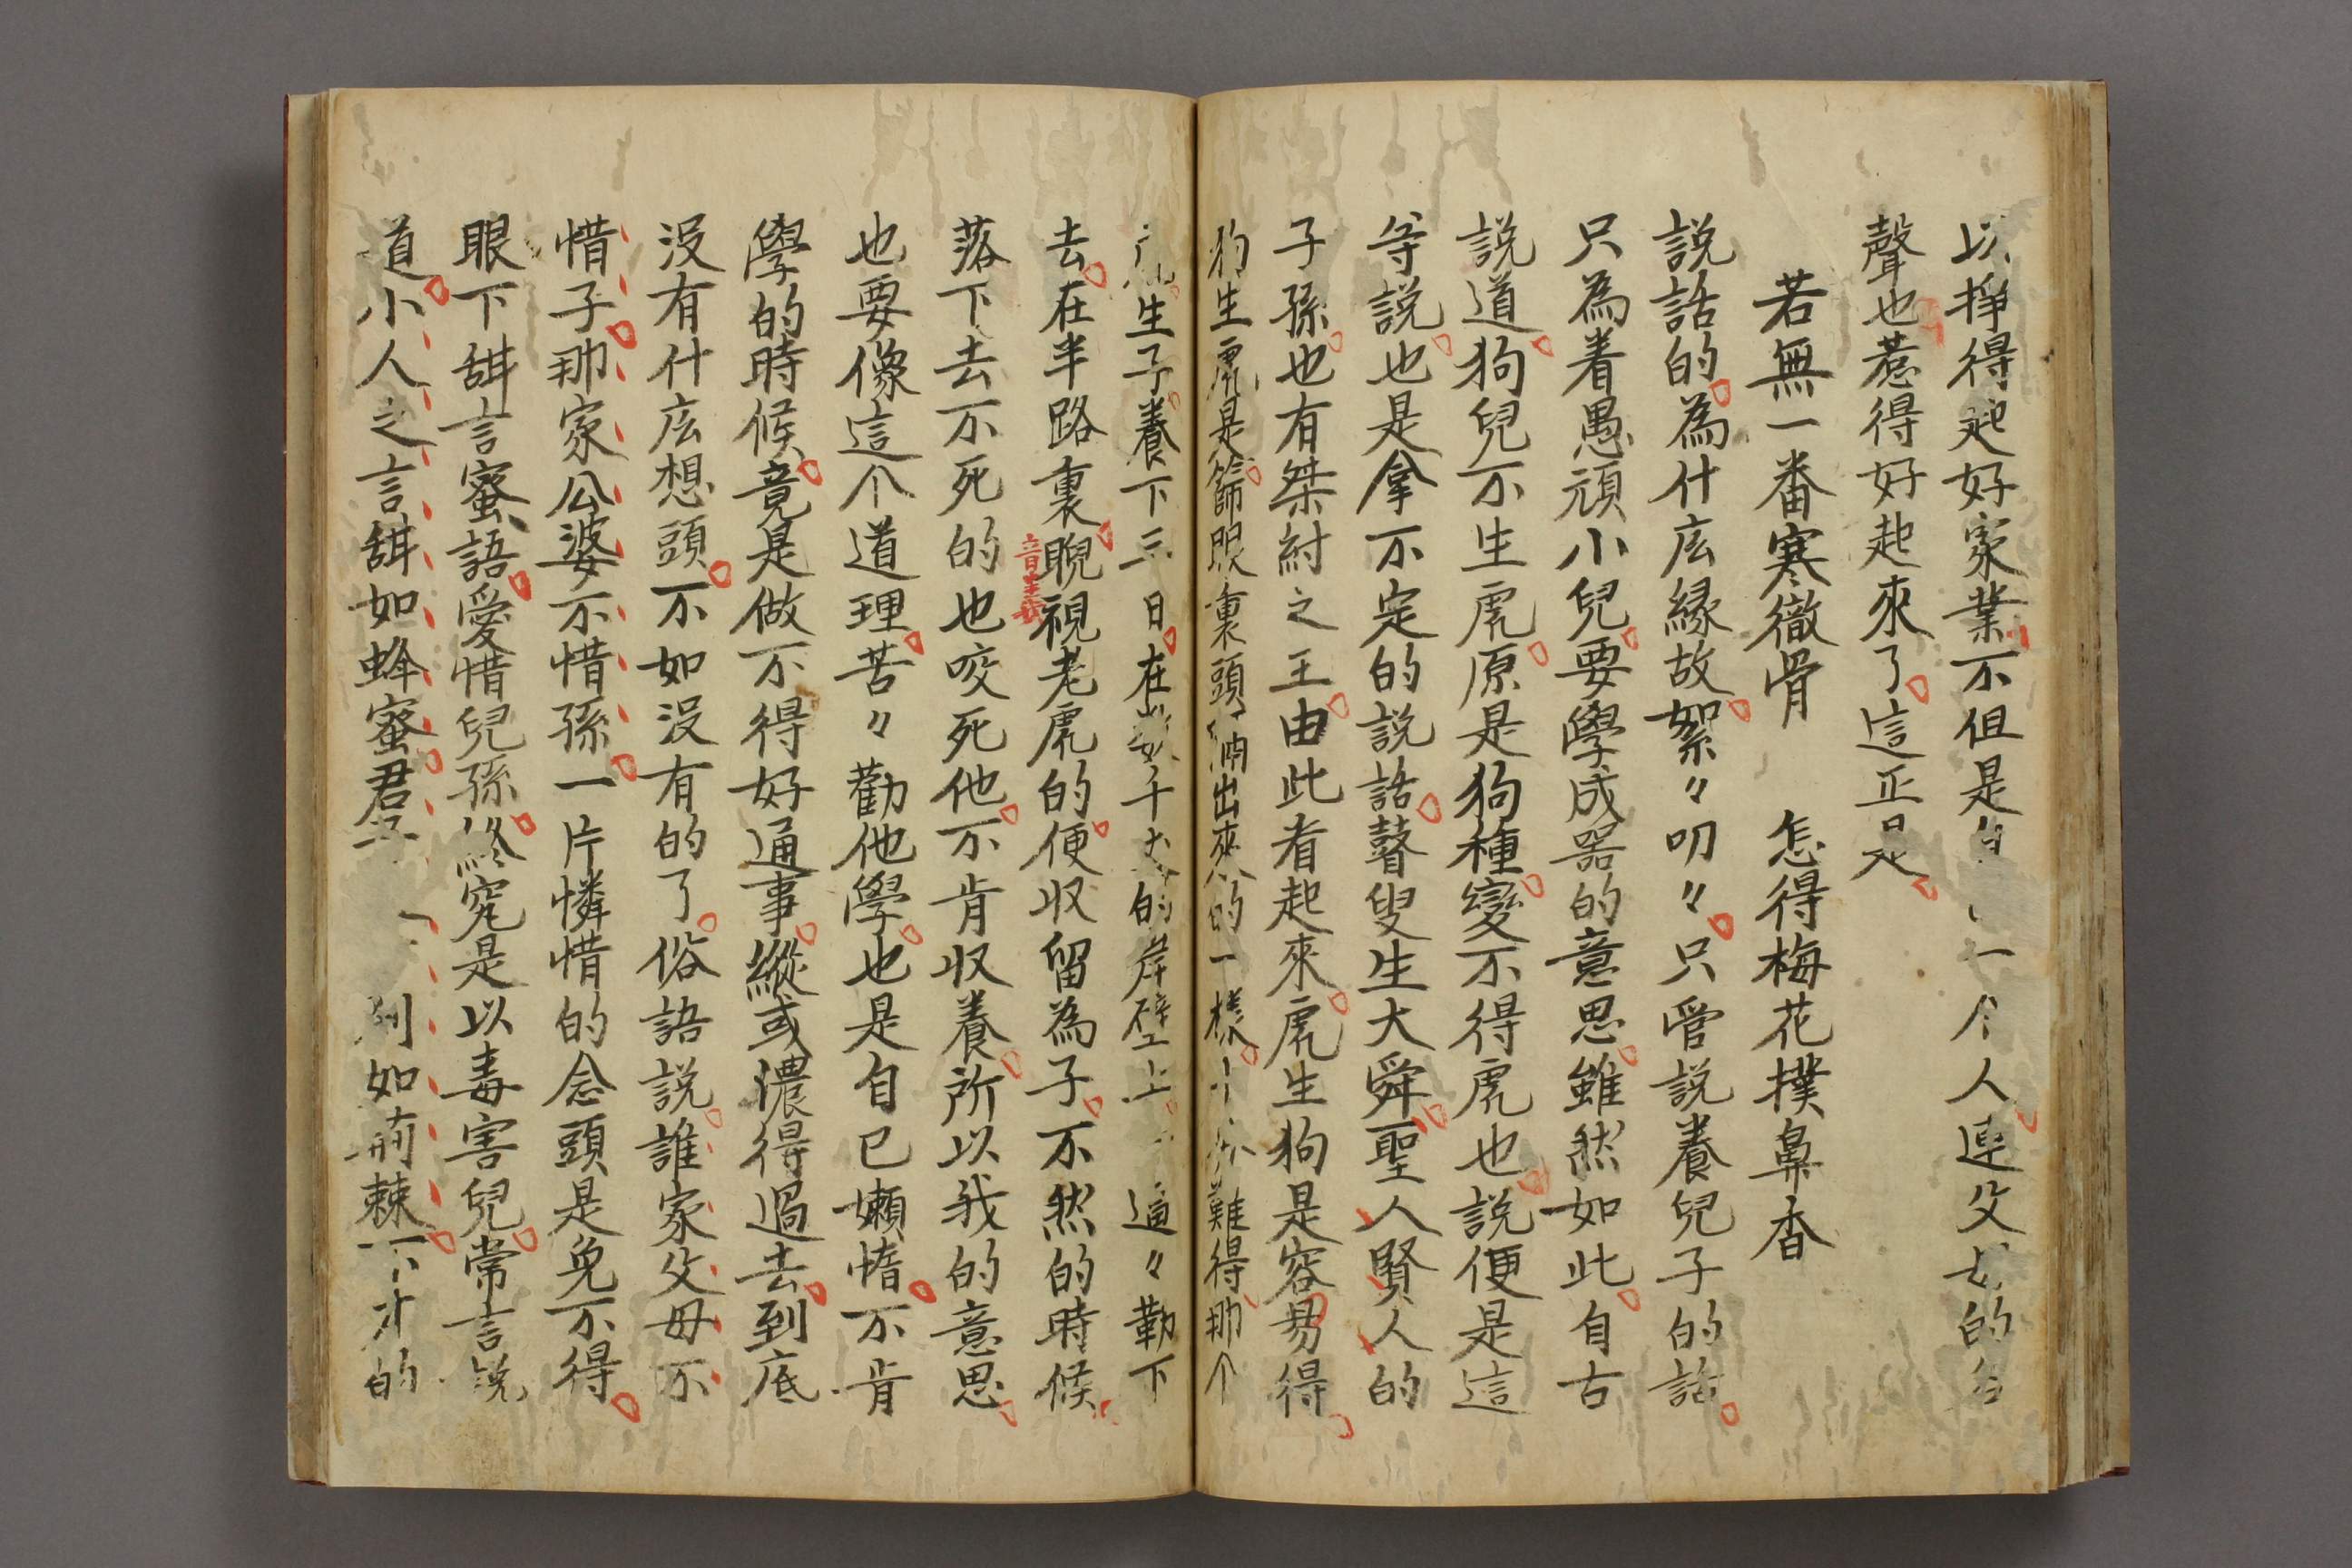 以掙得起好家業不但是 一个人連父母的名
聲也惹得好起來了這正是
若無一番寒徹骨 怎得梅花撲鼻香
說話的為什広縁故絮〻叨〻只管說養兒子的話
只為着愚頑小兒要學成器的意思雖然如此自古
說道狗兒不生虎原是狗種變不得虎也說便是這
等説也是拿不定的説話瞽叟生大舜聖人賢人的
子孫也有桀紂之王由此看起來虎生狗是容易得
狗生虎是篩眼裏頭 出來的一樣十分難得那个
虎生子養下三日在數千丈的岸壁上 逼〻勒下
去在半路裏睨視老虎的便収留為子不然的時候
音義
落下去不死的也咬死他不肯収養所以我的意思
也要像這个道理苦〻勸他學也是自已嬾惰不肯
學的時候竟是做不得好通事縱或濃得過去到底
沒有什広想頭不如沒有的了俗語説誰家父母不
惜子那家公婆不惜孫一片憐惜的念頭是免不得
眼下甜言蜜語愛惜兒孫終究是以毒害兒常言說
道小人之言甜如蜂蜜君子 列如荊棘不才的